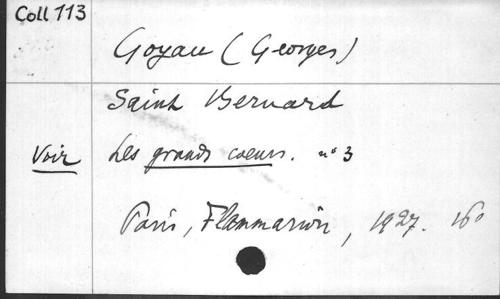 Coll 113
Goyau (Georges)
Saint Bernard
Voir Les grands coeurs. n° 3
Paris, Flammarion, 1927. 16°